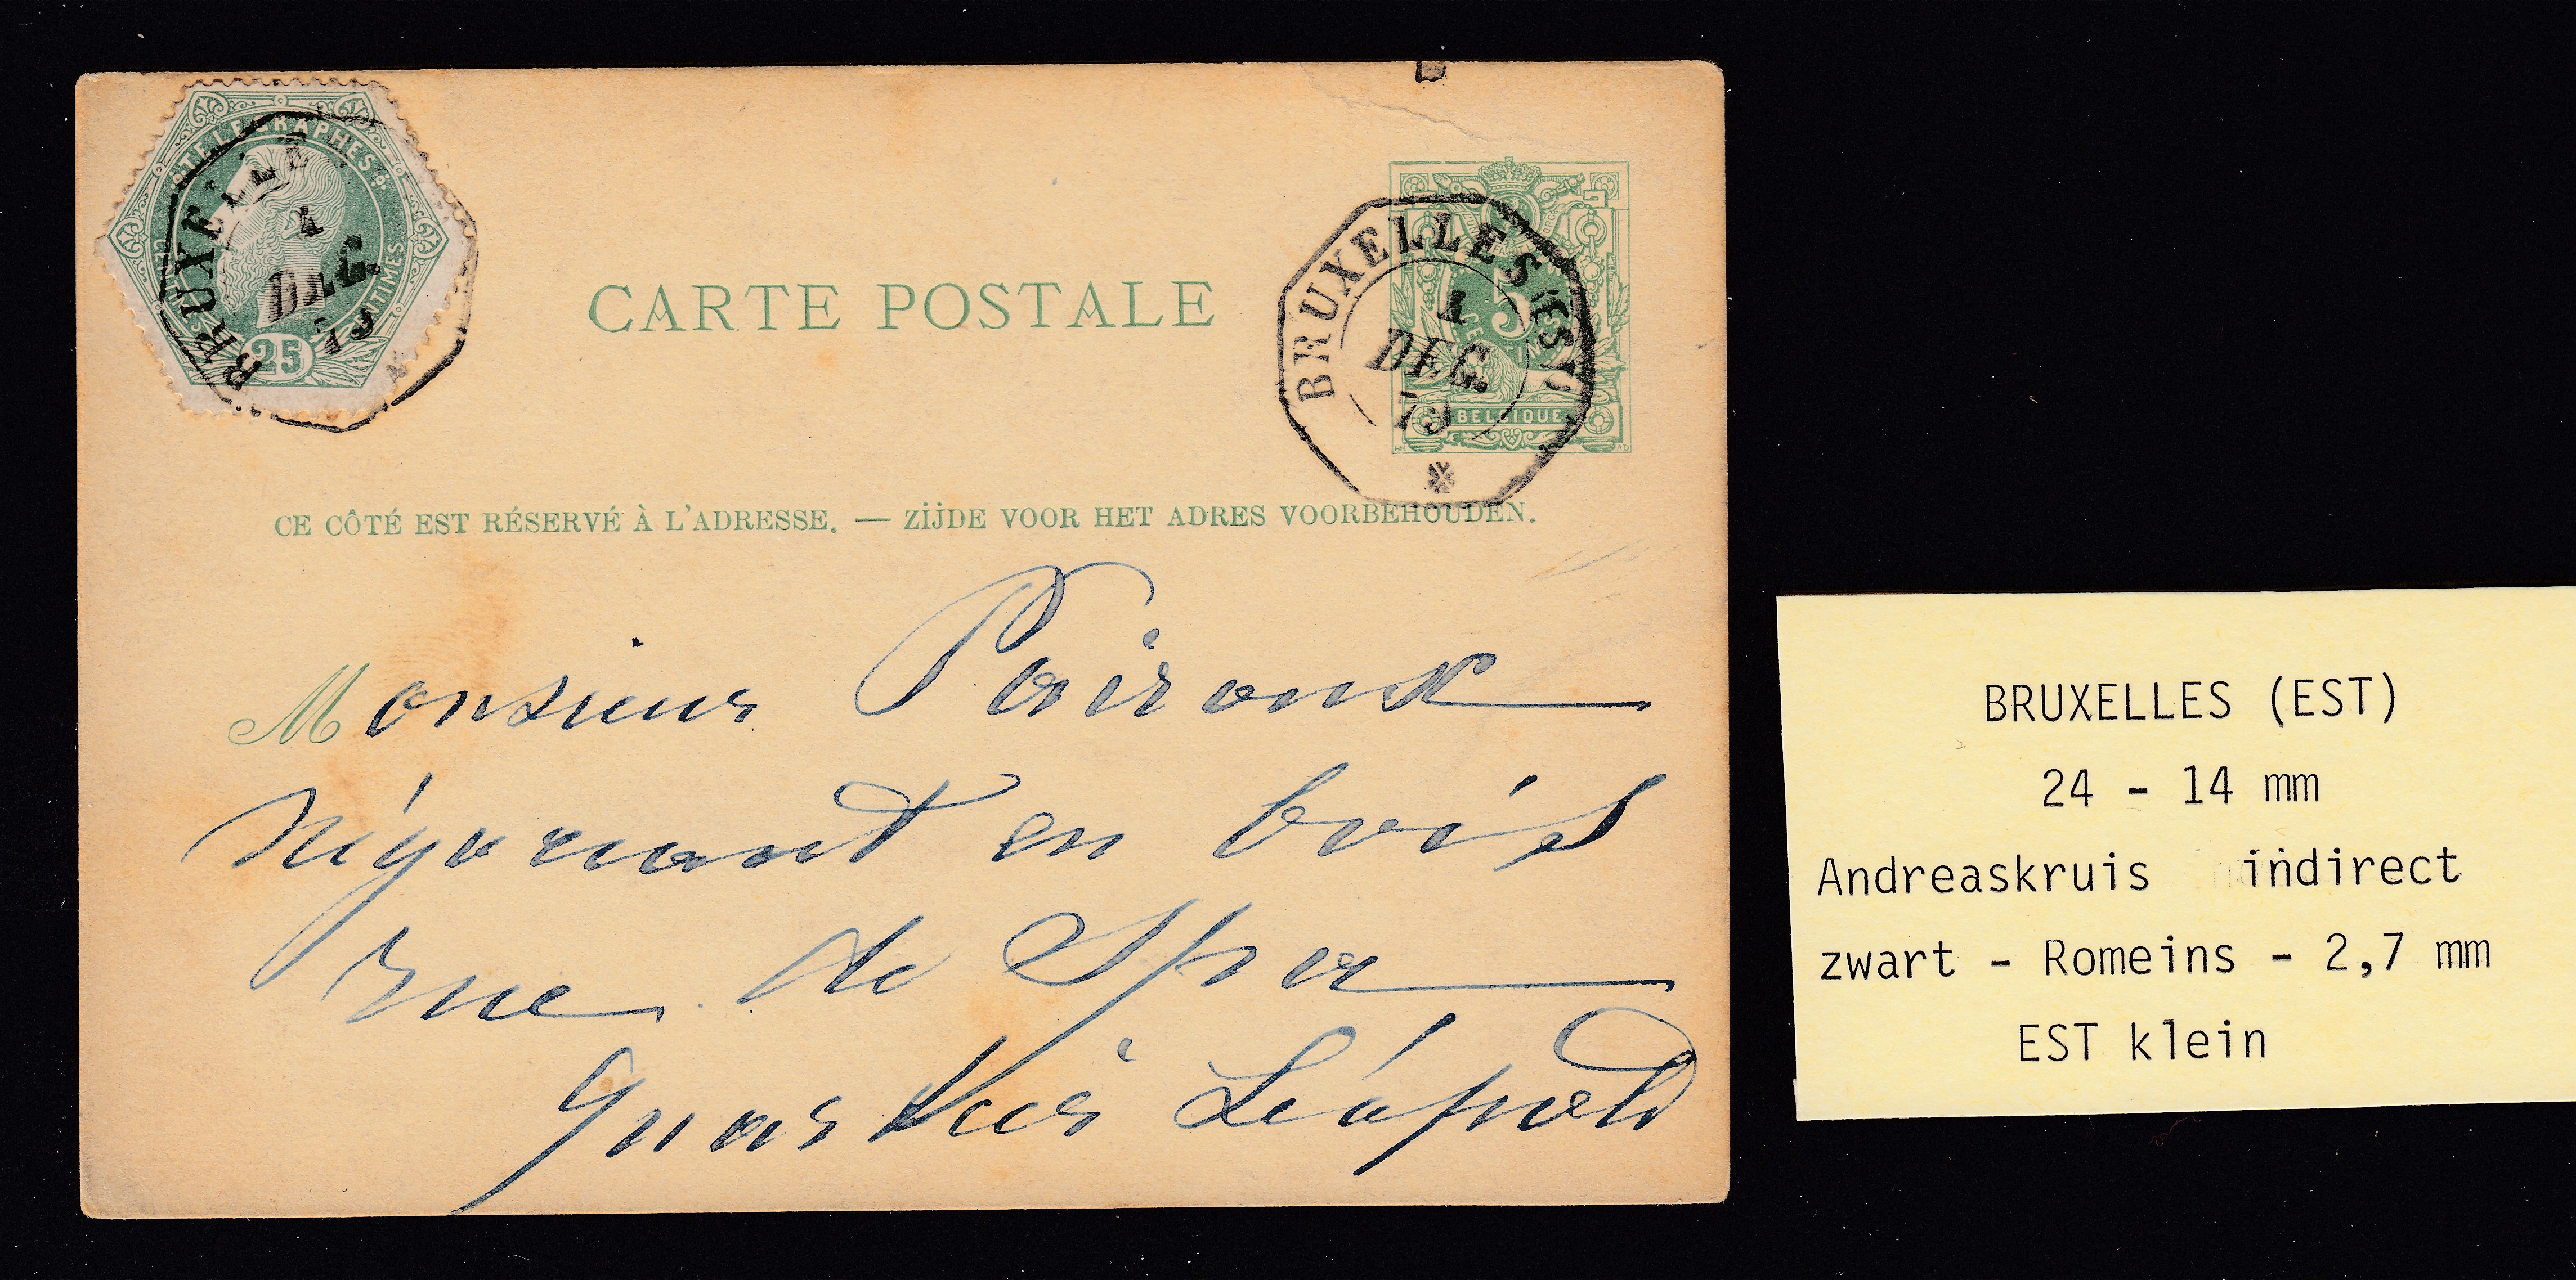 TELEGRAPHES
CENTIMES
25
BRUXELLES
DEC.
79
CARTE POSTALE
BRUXELLES (EST)
1
DEC.
79
5
BELGIQUE
CE CÔTÉ EST RÉSERVÉ À L'ADRESSE. — ZIJDE VOOR HET ADRES VOORBEHOUDEN.
Monsieur
Négociant en bois
rue de Spa
Quartier Léopold
BRUXELLES (EST)
24 - 14 mm
Andreaskruis indirect
zwart - Romeins - 2,7 mm
EST klein